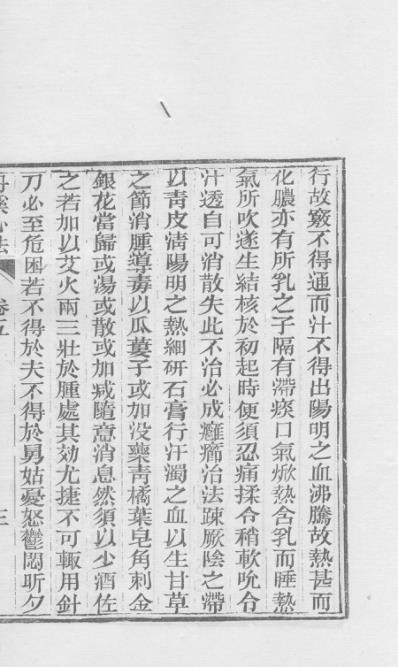 行故竅不得通而汁不得出陽明之血沸騰故熱甚而
化膿亦有所乳之子膈有滯痰口氣焮熱含乳而睡熱
氣所吹遂生結核於初起時便須忍痛揉令稍軟吮令
汁透自可消散失此不治必成癰癤治法疎厥陰之滯
以靑皮淸陽明之熱細研石膏行汙濁之血以生甘草
之節消腫導毒以瓜蔞子或加没藥靑橘葉皂角刺金
銀花當歸或湯或散或加减隨意消息然須以少酒佐
之若加以艾火兩三壯於腫處其効尤捷不可輒用針
刀必至危困若不得於夫不得於舅姑憂怒鬱悶昕夕
丹溪心法 卷五 三